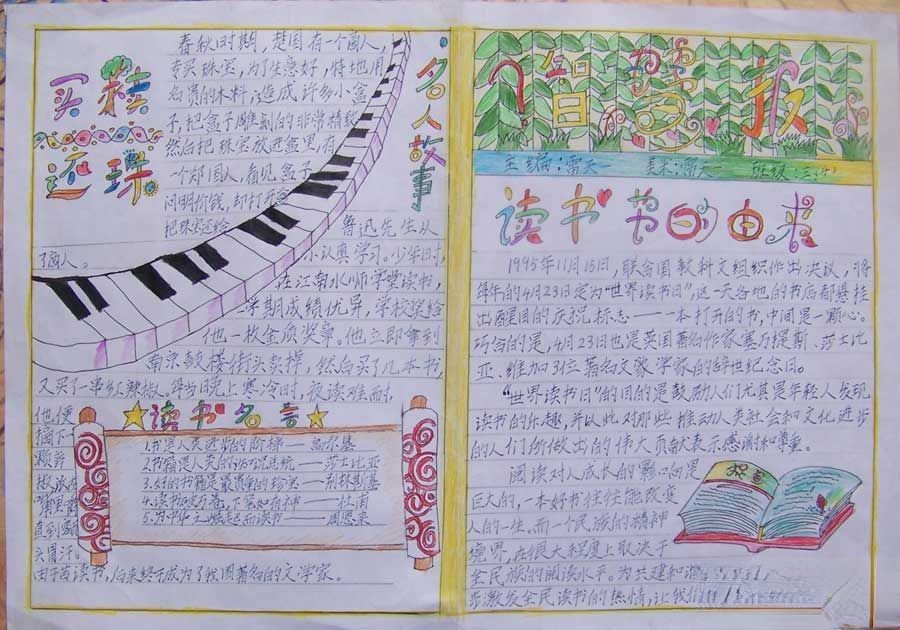 买椟
还珠
春秋时期，楚国有一个商人，
专买珠宝，为了生意好，特地用
名贵的木料，造成许多小盒
子，把盒子雕刻的非常精致
然后把珠宝放进盒里，有
一个郑国人，看见盒子
问明价钱，却打开盒
把珠宝还给
了商人。
名人故事
鲁迅先生从
小认真学习。少年时，
在江南水师学堂读书，
学期成绩优异，学校奖给
他一枚金质奖章。他立即拿到
南京鼓楼街头卖掉，然后买了几本书，
又买了一串红辣椒。每当晚上寒冷时，夜读难耐，
他便
摘下一
颗辣
椒放在
嘴里
直到
头冒汗。
由于苦读书，后来终于成为了我国著名的文学家。
读书名言
1.书是人类进步的阶梯——高尔基
2.书籍是人类的——莎士比亚
3.好的书籍是最贵重的珍宝——别林斯基
4.读书破万卷，下笔如有神——杜甫
5.为中华之崛起而读书——周恩来
报
主编：雷天一 美术：雷天一 班级：三
读书节的由来
1995年11月15日，联合国教科文组织作出决议，将
每年的4月23日定为“世界读书日”，这一天各地的书店都悬挂
出醒目的庆祝标志——一本打开的书，中间是一颗心。
巧合的是，4月23日也是英国著名作家塞万提斯、莎士比
亚、维加3位著名文豪学家的辞世纪念日。
“世界读书日”的目的是鼓励人们尤其是年轻人发现
读书的乐趣，并以此对那些推动人类社会和文化进步
的人们所做出的伟大贡献表示感谢和尊重。
阅读对人成长的影响是
巨大的，一本好书往往能改变
人的一生。而一个民族的精神
境界，在很大程度上取决于
全民族的阅读水平。为共建和谐
步激发全民读书的热情，让我们